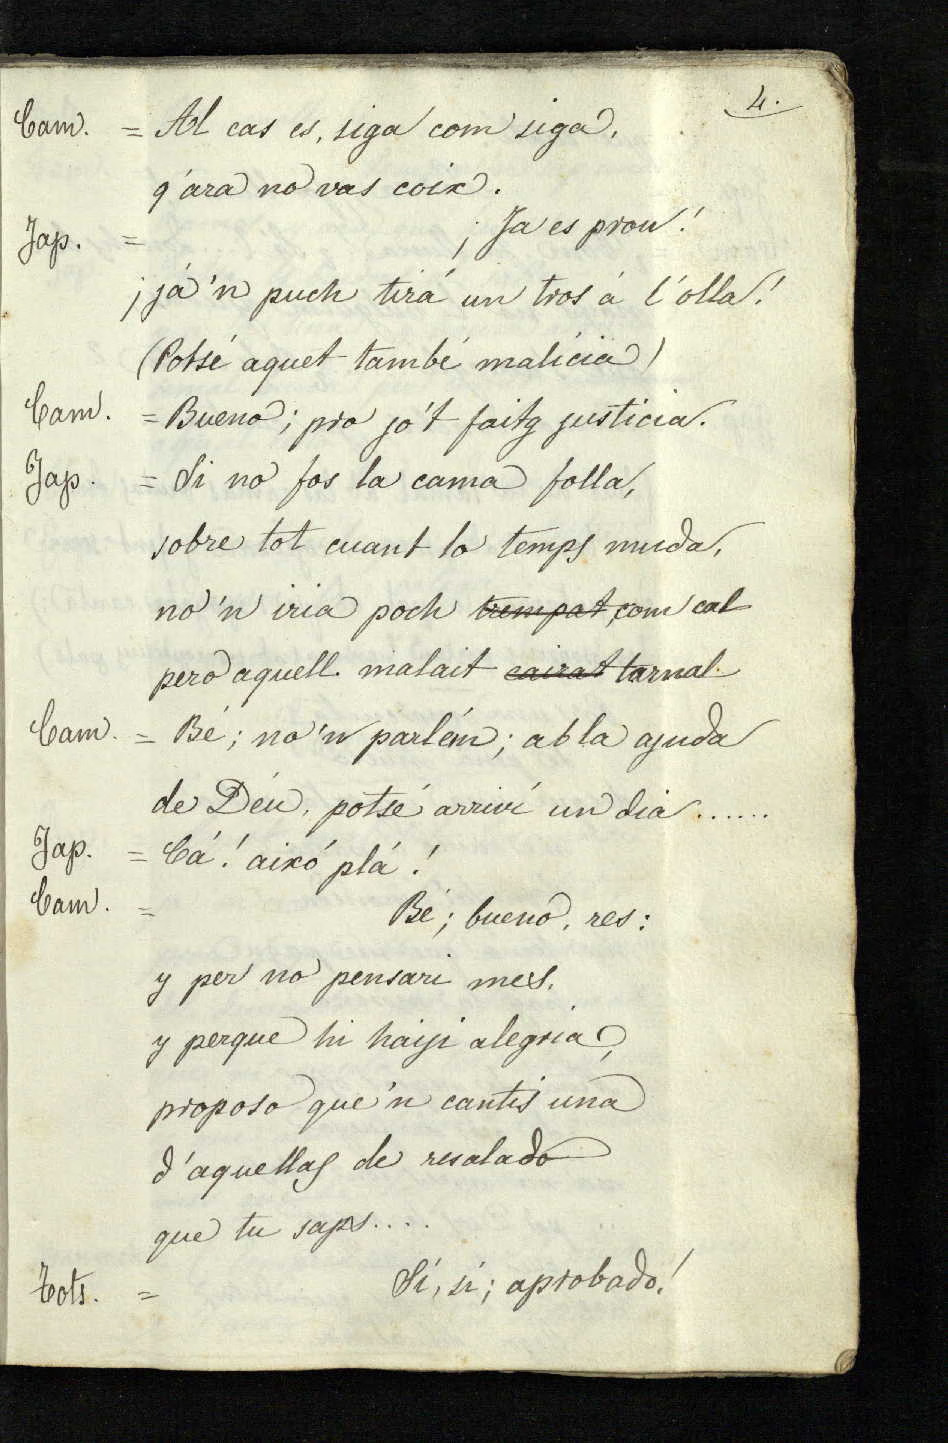 4.
Cam. = Al cas es, siga com siga,
q'ara no vas coix.
Jap. = ¡Ja es prou!
¡já 'n puch tirá un tros á l'olla!
(Potsé aquet també malícia)
Cam. = Bueno; pro jo't faitg justicia.
Jap. = Si no fos la cama folla,
sobre tot cuant lo temps muda,
no 'n iria poch trempat, com cal
pero aquell malait cairat tarnal.
Cam. = Bé; no 'n parlém; ab la ajuda
de Déu, potsé arriví un dia......
Jap. = Cá! aixó plá!
Cam. = Bé; bueno, res:
y per no pensari mes,
y perque hi haiji alegria,
proposo que 'n cantis una
d'aquellas de resalado
que tu saps....
Tots. = Sí, sí; aprobado!